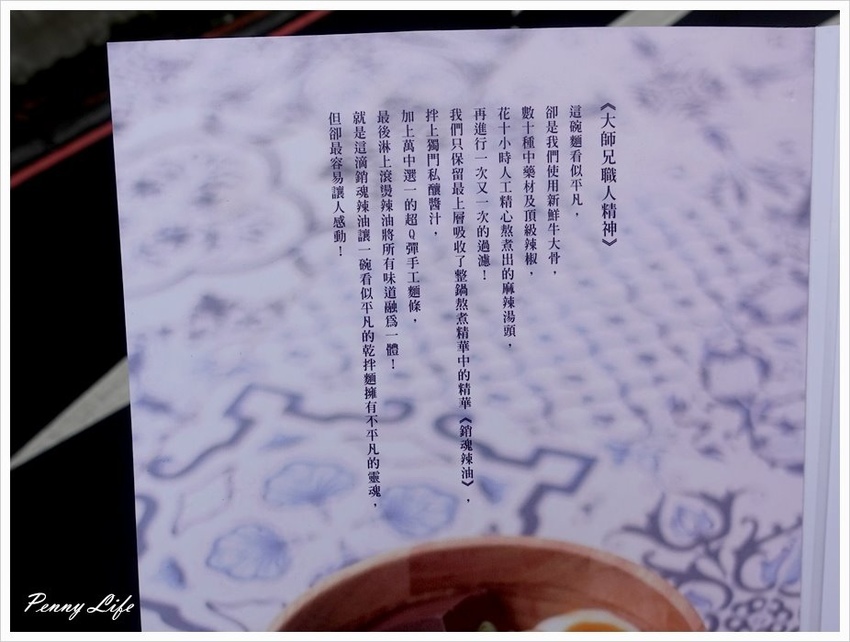 《大師兄職人精神》
這碗麵看似平凡，
卻是我們使用新鮮牛大骨，
數十種中藥材及頂級辣椒，
花十小時人工精心熬煮出的麻辣湯頭，
再進行一次又一次的過濾！
我們只保留最上層吸收了整鍋熬煮精華中的精華《銷魂辣油》，
拌上獨門私釀醬汁，
加上萬中選一的超Q彈手工麵條，
最後淋上滾燙辣油將所有味道融為一體！
就是這滴銷魂辣油讓一碗看似平凡的乾拌麵擁有不平凡的靈魂，
但卻最容易讓人感動！
Penny Life